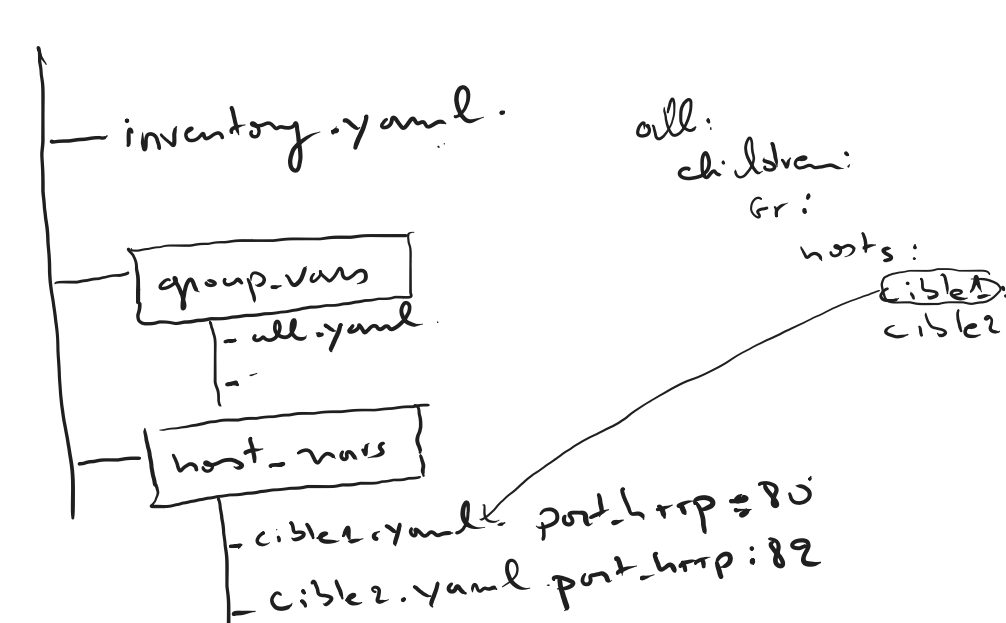 inventory.yaml.
group_vars
- all.yaml
-
host_vars
- cible1.yaml port_http : 80
- cible2.yaml port_http : 82
all:
children:
Gr :
hosts :
cible1:
cible2